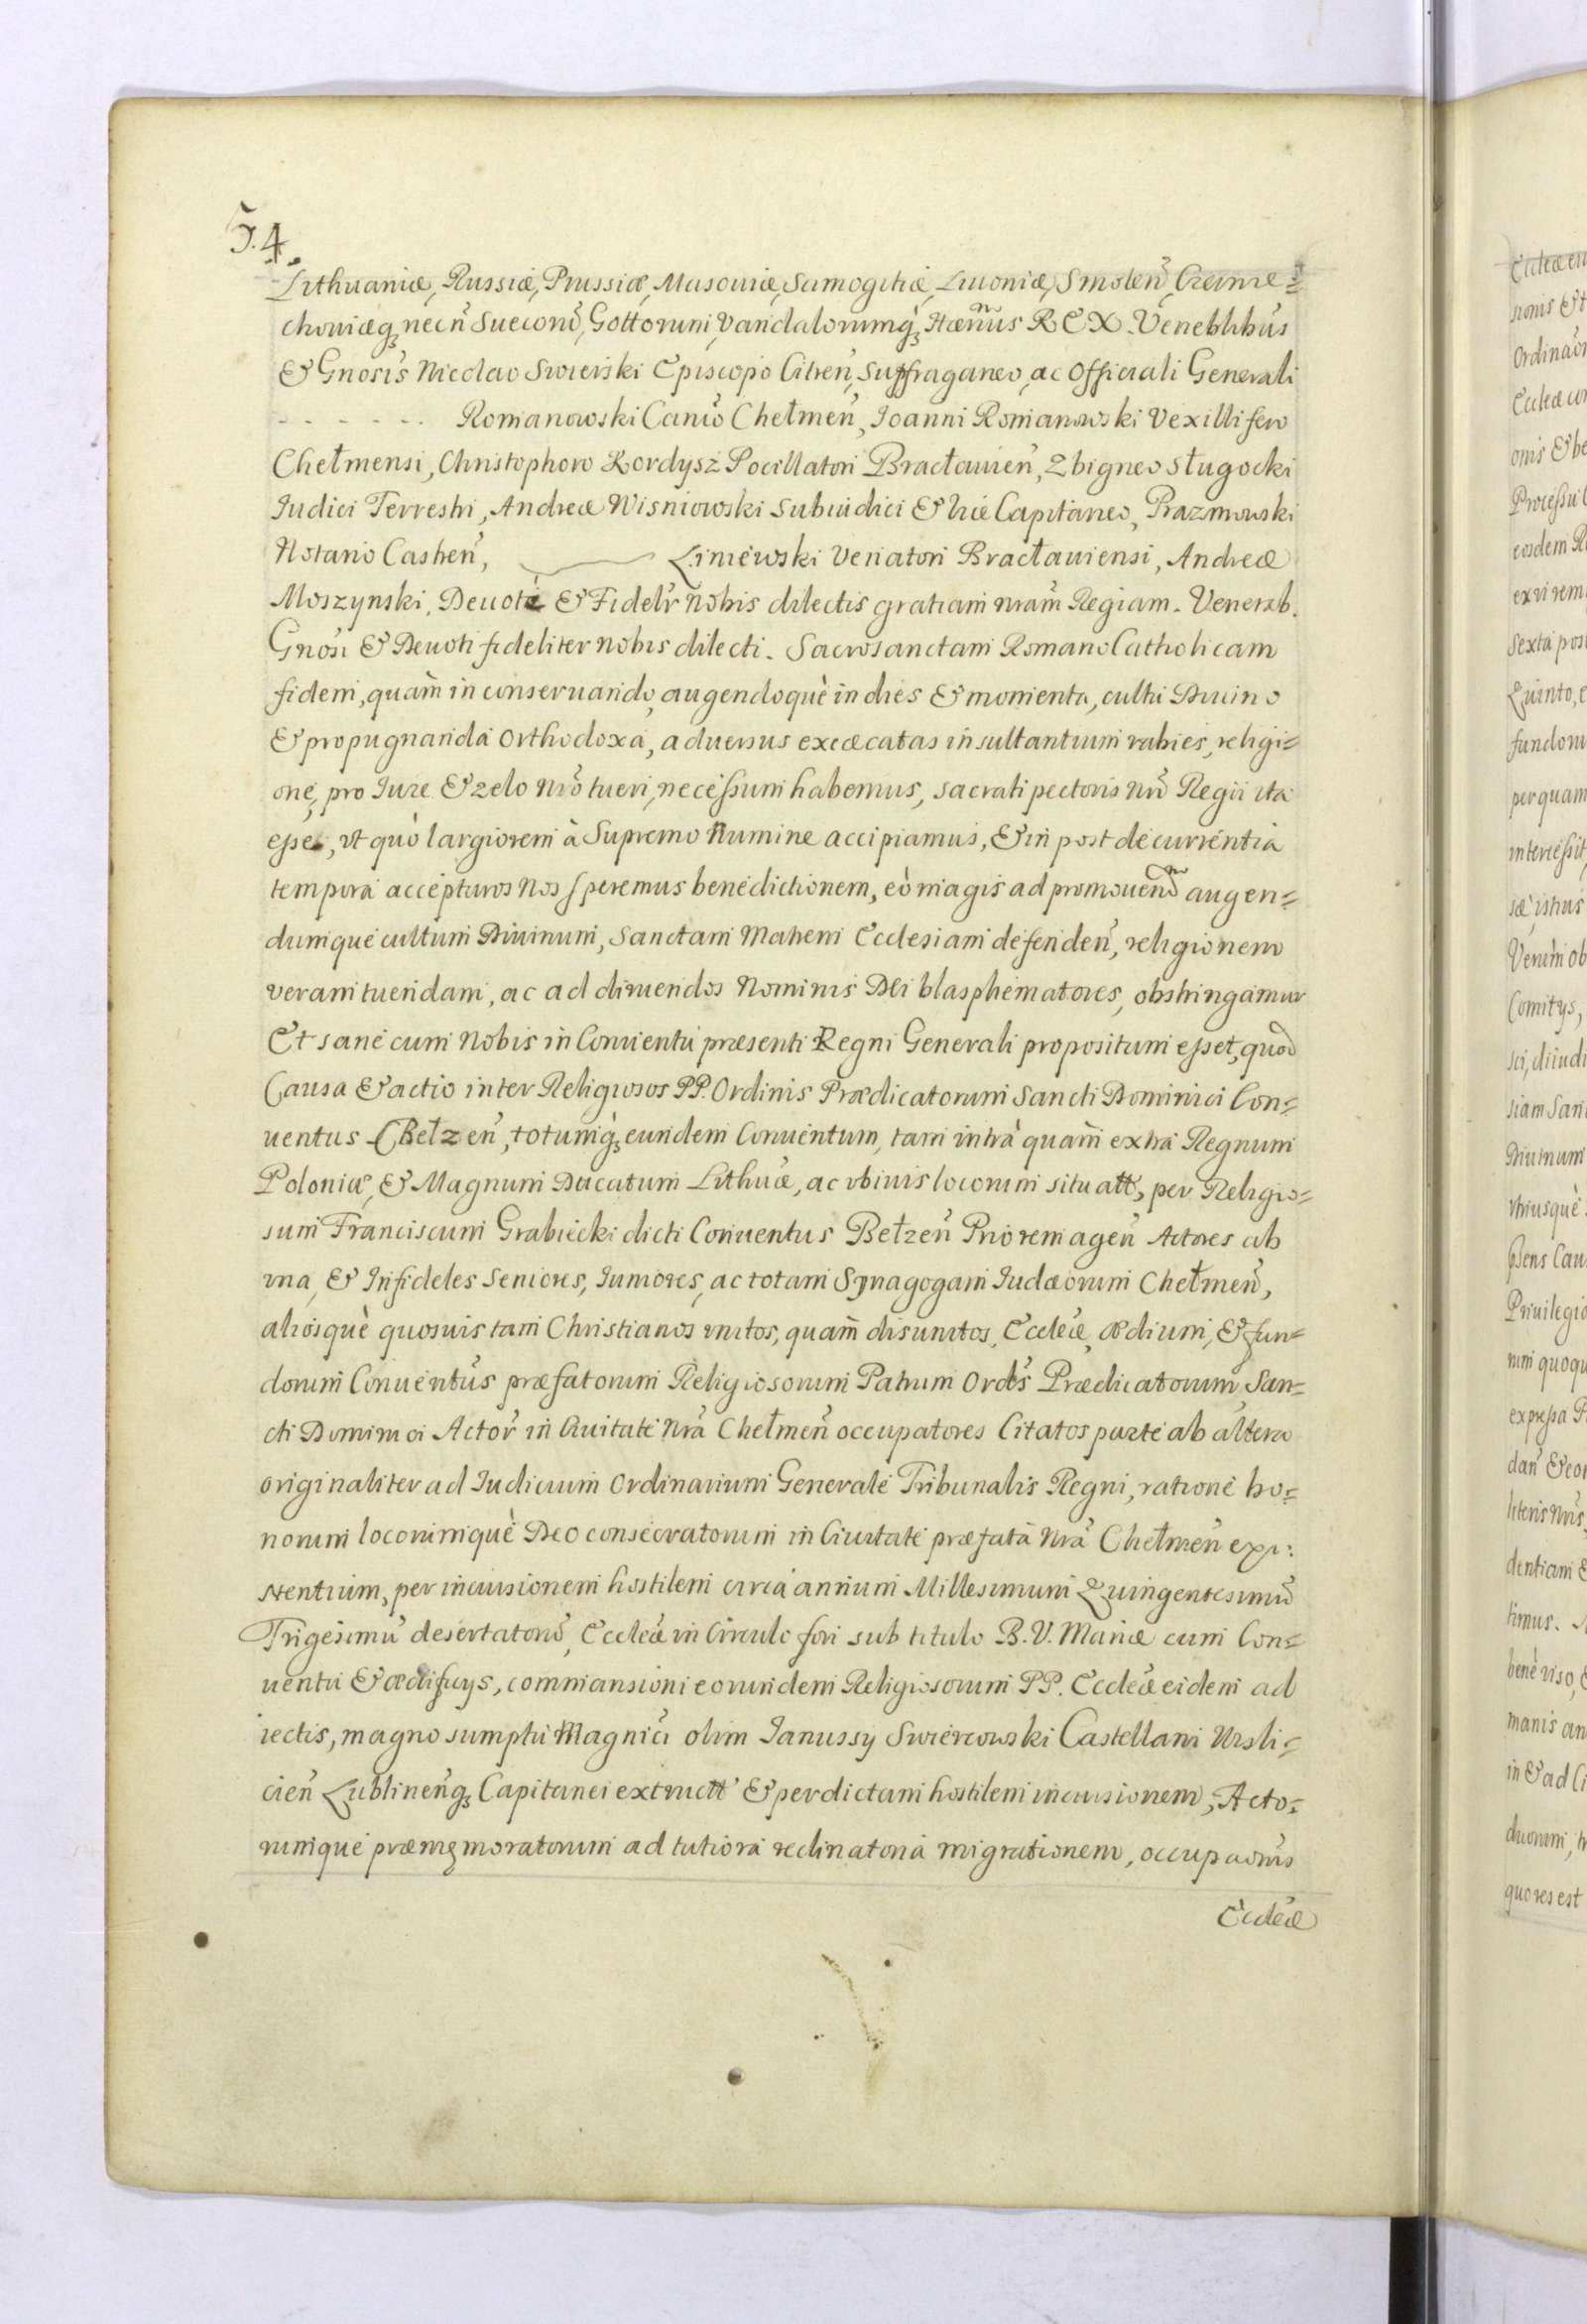 54.
Lithuaniæ, Russiæ, Prussiæ, Masouiæ, Samogitiæ, Liuoniæ, Smolen̄, Czernie=
chouiæq₃ necn̄ Sueconō, Gottorum, Vandalorumq₃ Hænus REX. Veneblibus
& Gnosis Nicolao Swierski Episcopo Citren̄, Suffraganeo, ac Officiali Generali
- - - - - - Romanowski Canīo Chełmen̄, Ioanni Romanowski Vexillifero
Chełmensi, Christophoro Kordysz Pocillatori Bracłauien̄, Zbigneo Sługocki
Iudici Terrestri, Andreæ Wisniowski Subiudici & Vice Capitaneo, Prazmowski
Notario Castren̄, Liniewski Venatori Bracłauiensi, Andreæ
Moszynski, Deuotè & Fidelr̄ Nobis dilectis gratiam nram̄ Regiam. Venerab.
Gnosi & Deuoti fideliter nobis dilecti. Sacrosanctam Romano Catholicam
fidem, quam̄ in conseruando, augendoquè in dies & momenta, cultu Diuino
& propugnanda Orthodoxa, aduersus execæcatas insultantium rabies, religi=
one, pro Iure & zelo Nr̄o tueri, necessum habemus, sacrati pectoris nr̄i Regii ita
esse, vt quò largiorem à Supremo Numine accipiamus, & in post decurrentia
tempora accepturos Nos speremus benedictionem, eò magis ad promouen̄d augen=
dumque cultum Diuinum, Sanctam Matrem Ecclesiam defenden̄, religionem
veram tuendam, ac ad diruendos Nominis Dei blasphematores, obstringamur
Et sane cum Nobis in Conuentu præsenti Regni Generali propositum esset, quod
Causa & actio inter Religiosos PP. Ordinis Prædicatorum Sancti Dominici Con=
uentus Bełzen̄, totumq₃ eundem Conuentum, tam intrà quam̄ extra Regnum
Poloniæ, & Magnum Ducatum Lithuæ, ac vbiuis locorum situatt, per Religio=
sum Franciscum Grabiecki dicti Conuentus Bełzen̄ Priorem agen̄ Actores ab
vna, & Infideles Seniores, Iuniores, ac totam Synagogam Iudæorum Chełmen̄,
aliosquè quosuis tam Christianos vnitos, quam̄ disunitos, Eccleæ, ædium, & fun=
dorum Conuentūs præfatorum Religiosorum Patrum Ordīs Prædicatorum San=
cti Dominici Actor̄ in Ciuitate Nrā Chełmen̄ occupatores Citatos parte ab altera
originaliter ad Iudicium Ordinarium Generale Tribunalis Regni, ratione bo=
norum locorumquè Deo consecratorum in Ciuitate præfatā Nrā Chełmen̄ exi:
stentium, per incursionem hostilem circa annum Millesimum Quingentesimū
Trigesimū desertatorō, Eccleæ in Circulo fori sub titulo B. V. Mariæ cum Con=
uentu & ædificys, commansioni eorundem Religiosorum PP. Eccleæ eidem ad
iectis, magno sumptu Magnici olim Ianussy Swierczowski Castellani Wisli=
cien̄ Lublinen̄q₃ Capitanei extructt & per dictam hostilem incursionem, Acto=
rumque præmemoratorum ad tutiora reclinatoria migrationem, occupaonis
Eccleæ